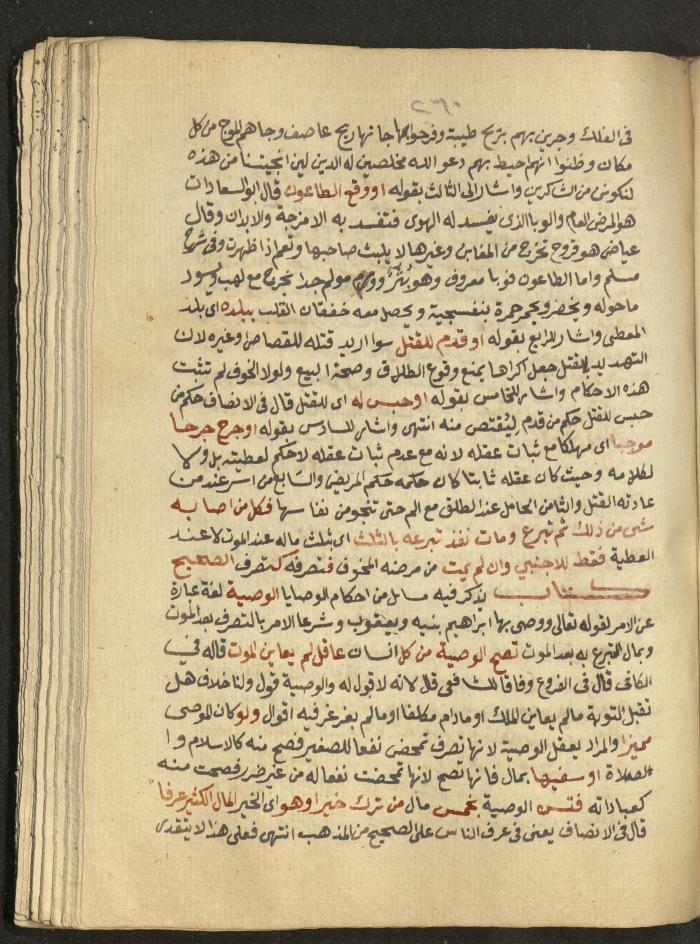 ٢٦٠
فى الفلك وجرين بهم بريح طيبة وفرحوا بها جاتها ريح عاصف وجاهم الموج من كل
مكان وظنوا انهم احيط بهم دعو الله مخلصين له الدين لين انجيتنا من هذه
لنكونن من الشاكرين واشار الى الثالث بقوله او وقع الطاعون قال ابو السعادات
هو المرض العام والوبا الذى يفسد له الهوى فتفسد به الامزجة والابدان وقال
عياض هو قروح تخرج من المغابن وغيرها لا يلبث صاحبها وتعم اذا ظهرت وفى شرح
مسلم واما الطاعون فوبا معروف وهو بثر وورم مولم جدا يخرج مع لهب ويسود
ما حوله ويخضر ويحمر حمرة بنفسجية ويحصل معه خفقان القلب ببلده اى بلد
المعطى واشار للرابع بقوله او قدم للقتل سوا اريد قتله للقصاص وغيره لان
التهديد بالقتل جعل اكراها يمنع وقوع الطلاق وصحة البيع ولولا الخوف لم تثبت
هذه الاحكام واشار للخامس بقوله او حبس له اى للقتل قال فى الانصاف حكم من
حبس للقتل حكم من قدم ليقتص منه انتهى واشار للسادس بقوله او جرح جرحا
موحيا اى مهلكا مع ثبات عقله لانه مع عدم ثبات عقله لا حكم لعطيته بل ولا
لكلامه وحيث كان عقله ثابتا كان حكمه حكم المريض والسابع من اسر عند من
عادته القتل والثامن الحامل عند الطلق مع الم حتى تنجو من نفاسها فكل من اصابه
شى من ذلك ثم تبرع ومات نفذ تبرعه بالثلث اى بثلث ماله عند الموت لا عند
العطية فقط للاجنبي وان لم يمت من مرضه المخوف فتصرفه كتصرف الصحيح
كتاب يذكر فيه مسايل من احكام الوصايا الوصية لغة عبارة
عن الامر لقوله تعالى ووصى بها ابراهيم بنيه ويعقوب وشرعا الامر بالتصرف بعد الموت
وبمال التبرع به بعد الموت تصح الوصية من كل انسان عاقل لم يعاين الموت قاله فى
الكافى قال فى الفروع وفاقا للشافعى قال لانه لا قول له والوصية قول ولنا خلاف هل
تقبل التوبة ما لم يعاين الملك او ما دام مكلفا او ما لم يغرغر فيه اقوال ولو كان الموصى
مميزا والمراد يعقل الوصية لانها تصرف تمحض نفعا للصغير فصح منه كالاسلام وا
لصلاة او سفيها بمال فانها تصح لانها تمحضت نفعا له من غير ضرر فصحت منه
كعباداته فتسن الوصية بخمس مال من ترك خيرا وهو اى الخير المال الكثير عرفا
قال فى الانصاف يعنى فى عرف الناس على الصحيح من المذهب انتهى فعلى هذا لا يتقدى